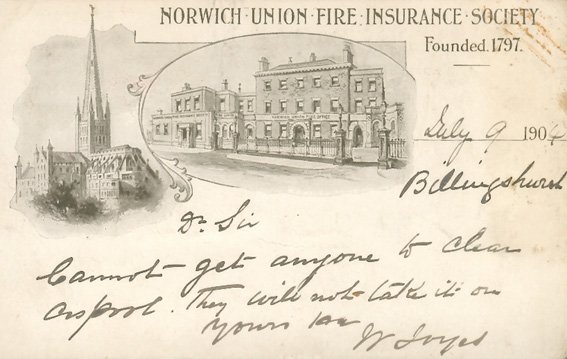 NORWICH·UNION·FIRE·INSURANCE·SOCIETY
Founded.1797.
NORWICH UNION FIRE OFFICE
July 9 1904
Billingshurst
Dr Sir
Cannot get anyone to clear
cesspool. They will not take it on
Yours
W